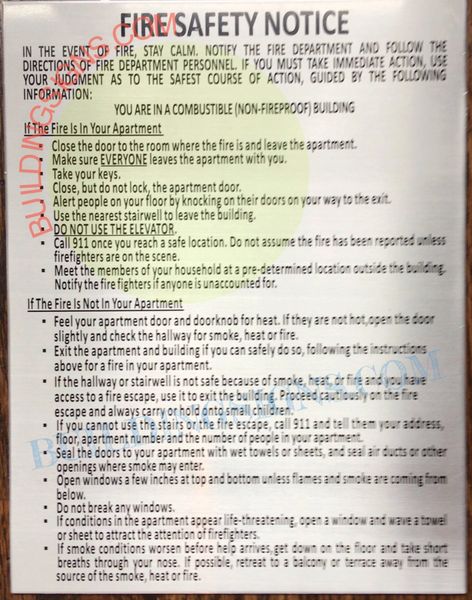 FIRE SAFETY NOTICE
IN THE EVENT OF FIRE, STAY CALM. NOTIFY THE FIRE DEPARTMENT AND FOLLOW THE
DIRECTIONS OF FIRE DEPARTMENT PERSONNEL. IF YOU MUST TAKE IMMEDIATE ACTION, USE
YOUR JUDGMENT AS TO THE SAFEST COURSE OF ACTION, GUIDED BY THE FOLLOWING
INFORMATION:
YOU ARE IN A COMBUSTIBLE (NON-FIREPROOF) BUILDING
If The Fire Is In Your Apartment
▪ Close the door to the room where the fire is and leave the apartment.
▪ Make sure EVERYONE leaves the apartment with you.
▪ Take your keys.
▪ Close, but do not lock, the apartment door.
▪ Alert people on your floor by knocking on their doors on your way to the exit.
▪ Use the nearest stairwell to leave the building.
▪ DO NOT USE THE ELEVATOR.
▪ Call 911 once you reach a safe location. Do not assume the fire has been reported unless
firefighters are on the scene.
▪ Meet the members of your household at a pre-determined location outside the building.
Notify the fire fighters if anyone is unaccounted for.
If The Fire Is Not In Your Apartment
▪ Feel your apartment door and doorknob for heat. If they are not hot,open the door
slightly and check the hallway for smoke, heat or fire.
▪ Exit the apartment and building if you can safely do so, following the instructions
above for a fire in your apartment.
▪ If the hallway or stairwell is not safe because of smoke, heat or fire and you have
access to a fire escape, use it to exit the building. Proceed cautiously on the fire
escape and always carry or hold onto small children.
▪ If you cannot use the stairs or the fire escape, call 911 and tell them your address,
floor, apartment number and the number of people in your apartment.
▪ Seal the doors to your apartment with wet towels or sheets, and seal air ducts or other
openings where smoke may enter.
▪ Open windows a few inches at top and bottom unless flames and smoke are coming from
below.
▪ Do not break any windows.
▪ If conditions in the apartment appear life-threatening, open a window and wave a towel
or sheet to attract the attention of firefighters.
▪ If smoke conditions worsen before help arrives,get down on the floor and take short
breaths through your nose. If possible, retreat to a balcony or terrace away from the
source of the smoke, heat or fire.
BUILDINGSIGNS.COM
BUILDINGSIGNS.COM